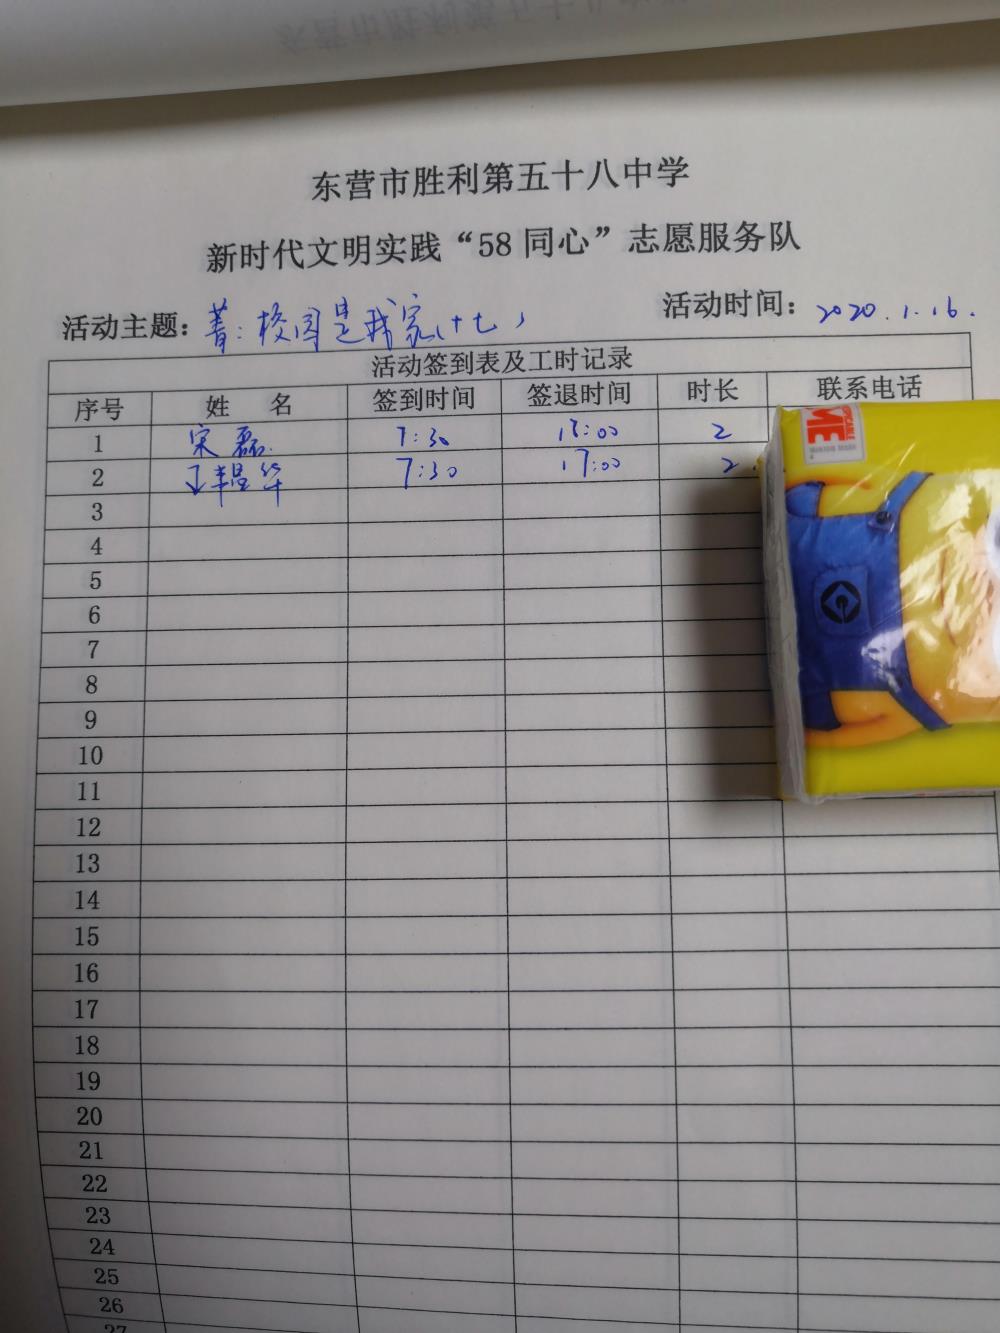 东营市胜利第五十八中学
新时代文明实践“58同心”志愿服务队
活动主题：菁：校园是我家（十七） 活动时间：2020.1.16.
活动签到表及工时记录
序号 姓名 签到时间 签退时间 时长 联系电话
1 宋磊 7:30 17:00 2
2 7:30 17:00 2
3
4
5
6
7
8
9
10
11
12
13
14
15
16
17
18
19
20
21
22
23
24
25
26
27
ME